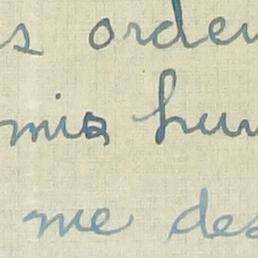 s orden
mis hum
me des